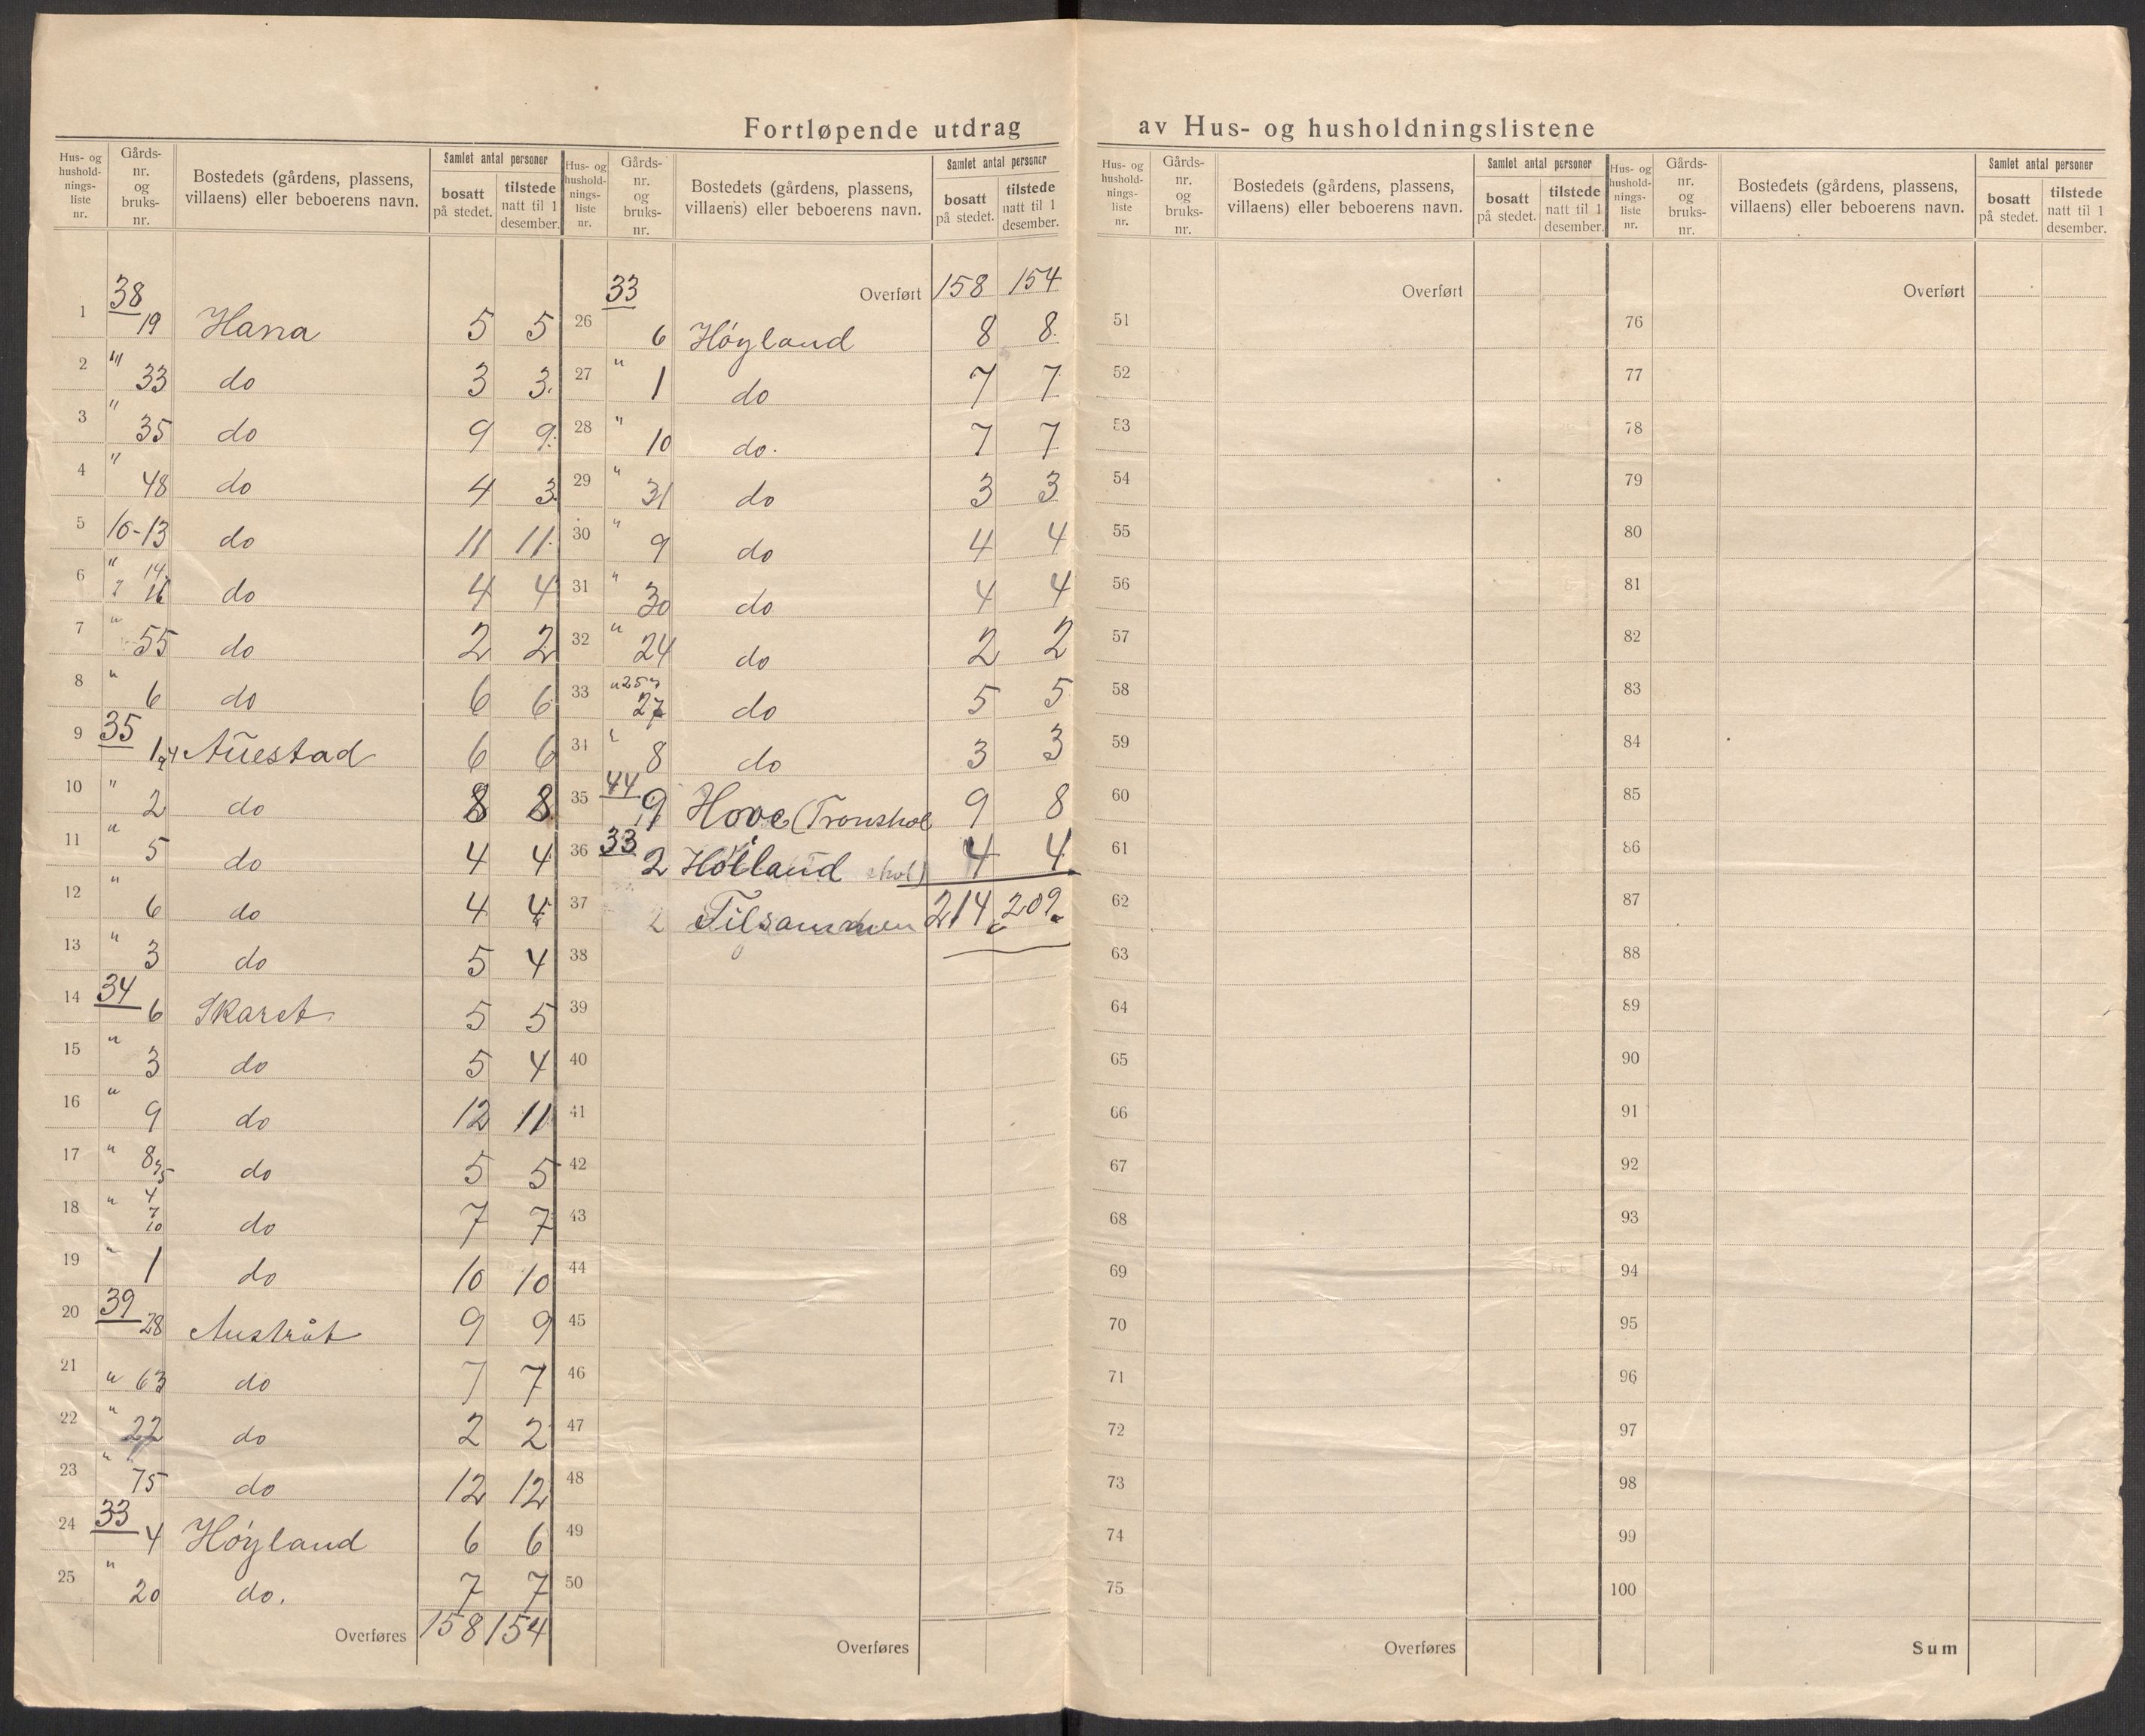 Fortløpende utdrag av Hus- og husholdningslistene
Hus- og husholdnings-liste nr. Gårds-nr. og bruks-nr. Bostedets (gårdens, plassens, villaens) eller beboerens navn. Samlet antal personer bosatt på stedet. tilstede natt til 1 desember.
1 38 19 Hana 5 5
2 " 33 do 3 3.
3 " 35 do 9 9.
4 " 48 do 4 3
5 10-13 do 11 11.
6 " 14 16 do 4 4
7 " 55 do 2 2
8 " 6 do 6 6
9 35 1 Auestad 6 6
10 " 2 do 8 8
11 " 5 do 4 4
12 " 6 do 4 4
13 " 3 do 5 4
14 34 6 Skaret 5 5
15 " 3 do 5 4
16 " 9 do 12 11
17 " 8 5 do 5 5
18 " 4 7 10 do 7 7
19 " 1 do 10 10
20 39 28 Austråt 9 9
21 " 63 do 7 7
22 " 22 do 2 2
23 " 75 do 12 12
24 33 4 Höyland 6 6
25 " 20 do. 7 7
Overføres 158 154
Hus- og husholdnings-liste nr. Gårds-nr. og bruks-nr. Bostedets (gårdens, plassens, villaens) eller beboerens navn. Samlet antal personer bosatt på stedet. tilstede natt til 1 desember.
33 Overført 158 154
26 6 Höyland 8 8.
27 " 1 do 7 7
28 " 10 do. 7 7
29 " 31 do 3 3
30 " 9 do 4 4
31 " 30 do 4 4
32 " 24 do 2 2
33 " 25 27 do 5 5
34 " 8 do 3 3
35 44 9 Hove (Tronshol 9 8
36 33 2 4 4.
37 Tilsammen 214 209
38
39
40
41
42
43
44
45
46
47
48
49
50
Overføres
Hus- og husholdnings-liste nr. Gårds-nr. og bruks-nr. Bostedets (gårdens, plassens, villaens) eller beboerens navn. Samlet antal personer bosatt på stedet. tilstede natt til 1 desember.
Overført
51
52
53
54
55
56
57
58
59
60
61
62
63
64
65
66
67
68
69
70
71
72
73
74
75
Overføres
Hus- og husholdnings-liste nr. Gårds-nr. og bruks-nr. Bostedets (gårdens, plassens, villaens) eller beboerens navn. Samlet antal personer bosatt på stedet. tilstede natt til 1 desember.
Overført
76
77
78
79
80
81
82
83
84
85
86
87
88
89
90
91
92
93
94
95
96
97
98
99
100
Sum